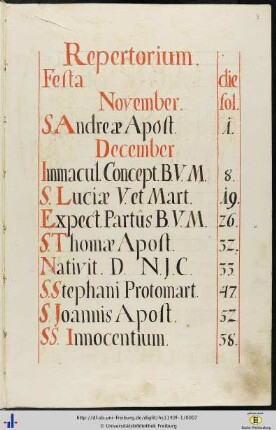 Repertorium.
Festa die
November. fol.
S. Andreæ Apost. 1.
December
Immacul. Concept. B.V.M. 8.
S. Luciæ V. et Mart. 19.
Expect. Partûs B.V.M. 26.
S. Thomæ Apost. 32.
Nativit. D. N.J.C. 33.
S. Stephani Protomart. 47.
S. Joannis Apost. 52.
SS. Innocentium. 58.
http://dl.ub.uni-freiburg.de/diglit/hs1190f-1/0007
© Universitätsbibliothek Freiburg